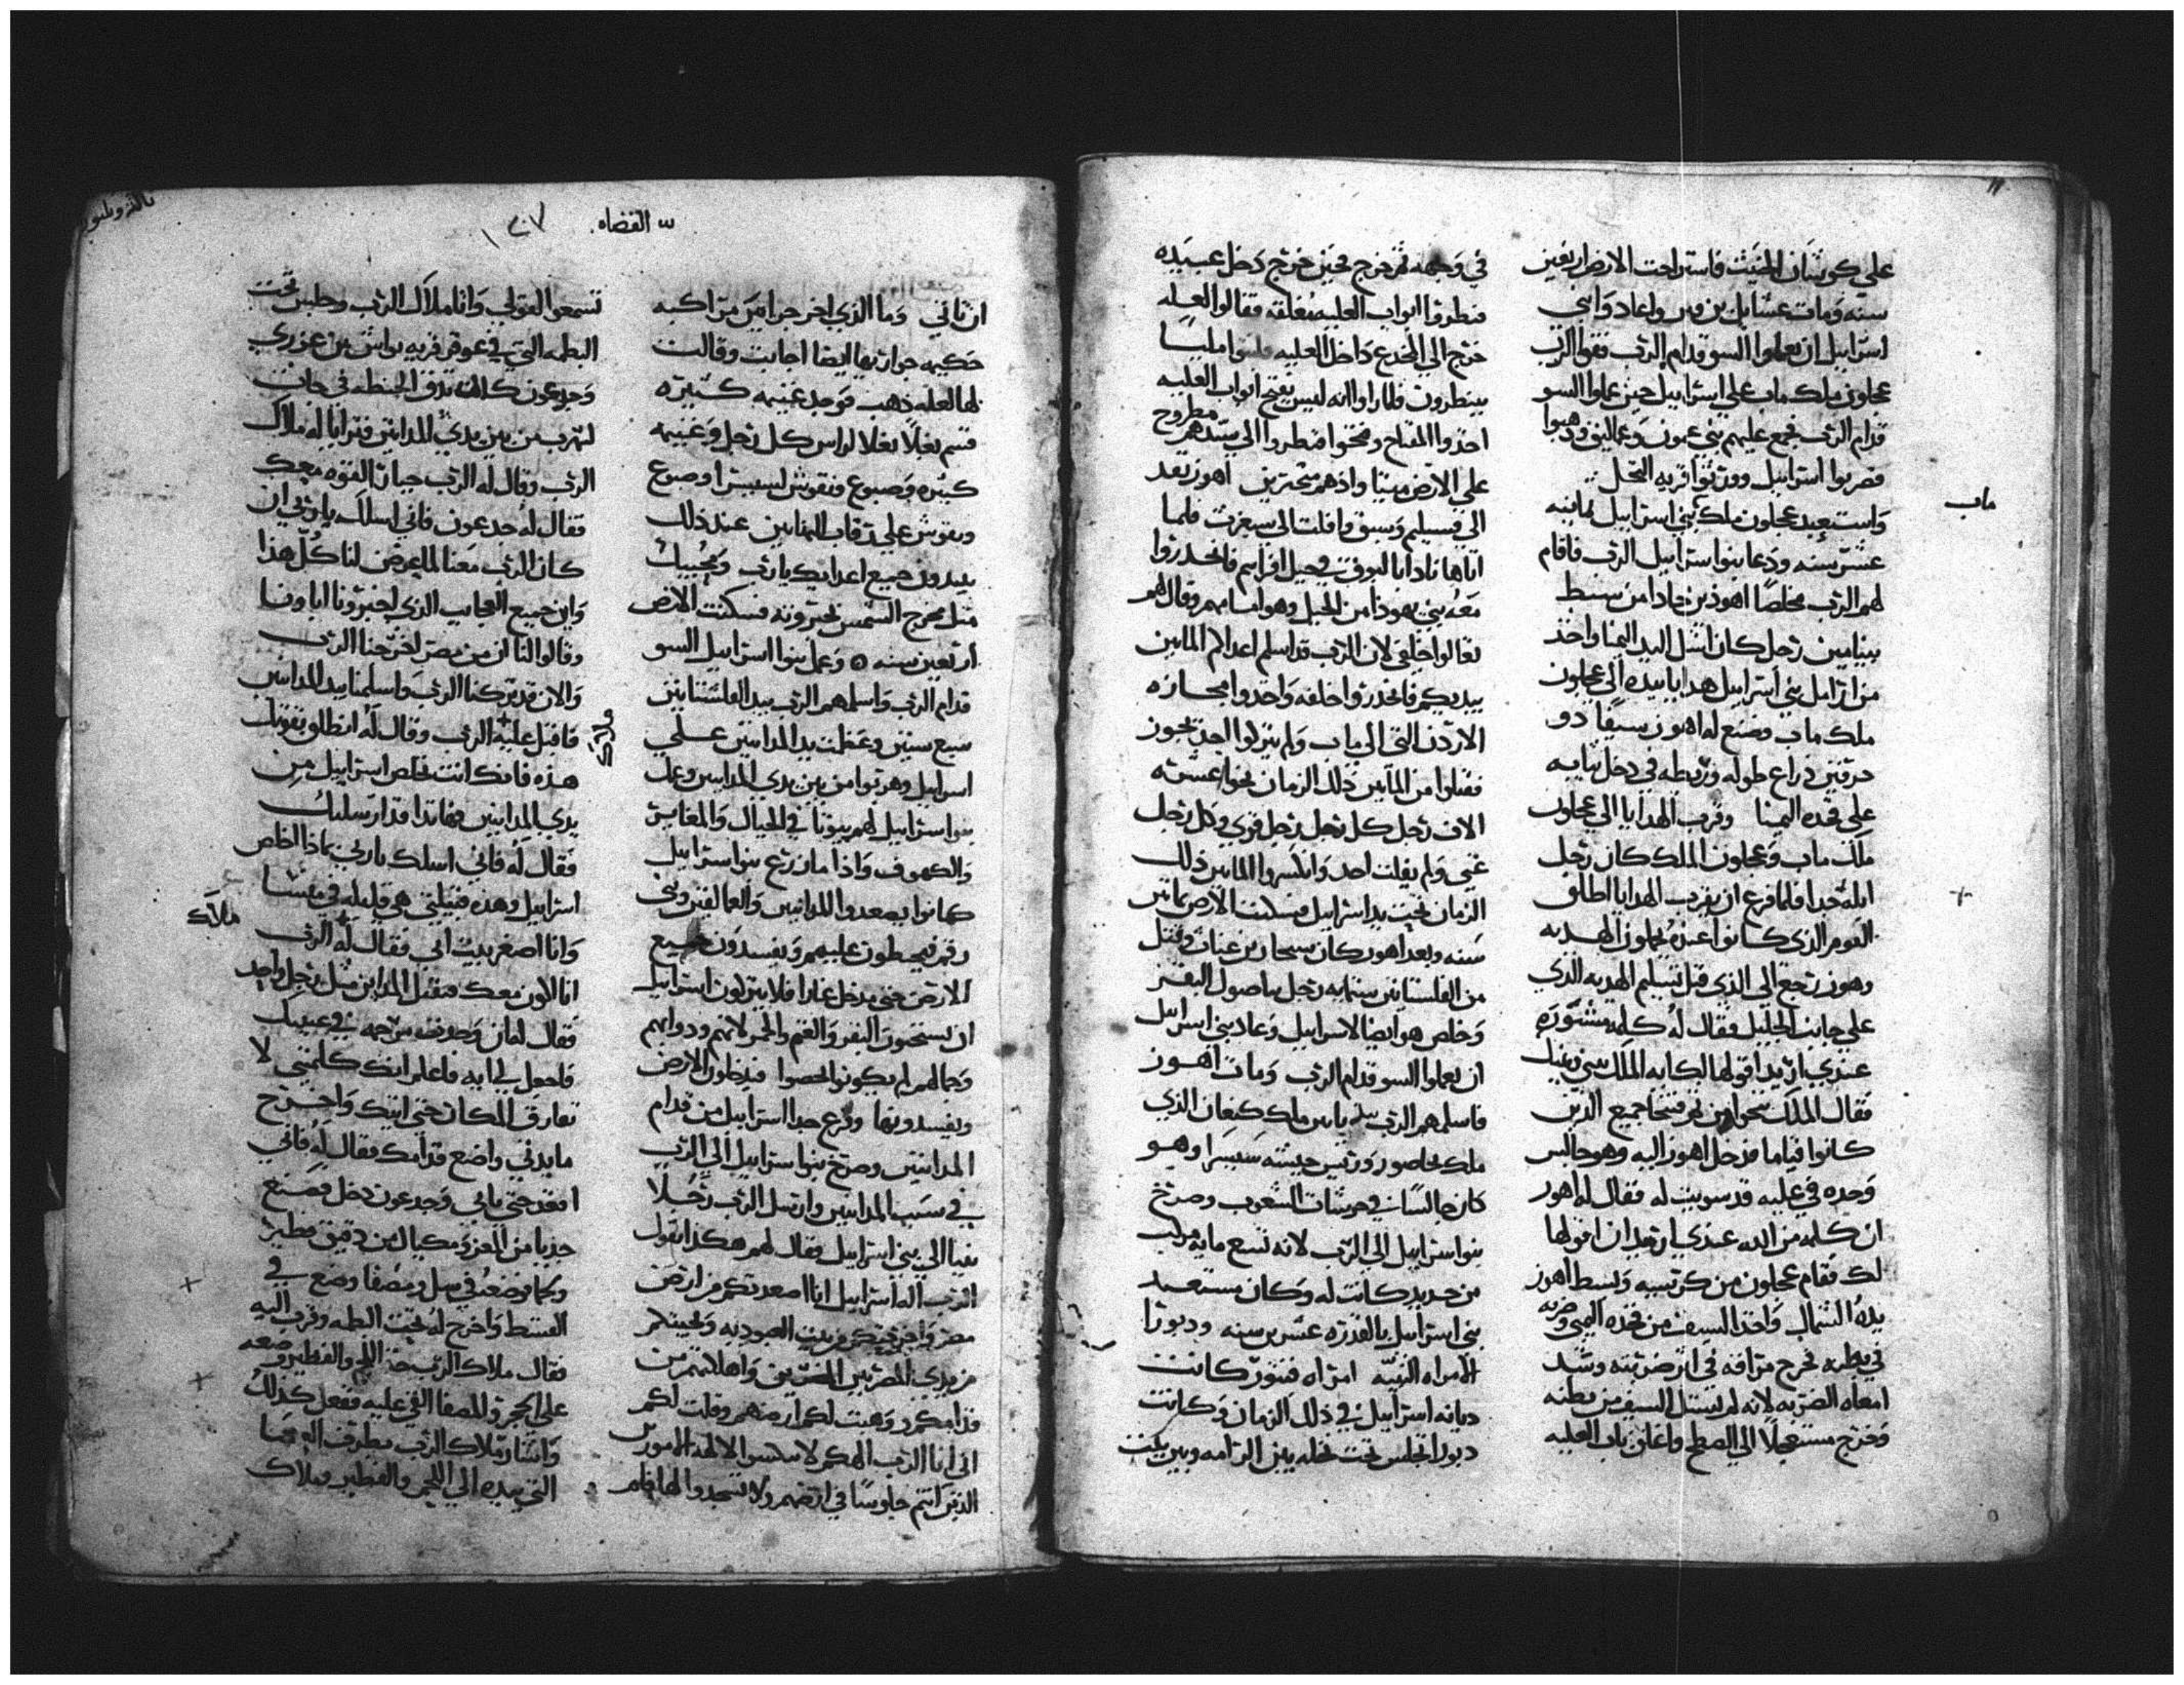 علي كوشان المنبث فاستراحت الارض اربعين
سنه ومات عشايل بن قين واعاد وابني
اسرايل ان يعملوا السو قدام الرب فقوا الرب
عجلون ملك ماب علي اسرايبل حين عملوا السو
قدام الرب فجمع عليهم بني عمون وعماليق وذهبوا
فضربوا اسراييل وورثوا قريه النخل
واستعبد عجلون ملك بني اسراييل ثمانيه
ماب
عشر سنه ودعا بنوا اسراييل الرب فاقام
لهم الرب مخلصا اهوذ بن جادا من سبط
بنيامين رجل كان اشل اليد اليمنا واخذ
من ارامل بني اسراييل هدايا بيده الي عجلون
ملك ماب وصنع له اهوذ سيفا ذو
حرفين ذراع طوله وربطه في دخل ثيابه
علي فخده اليمنا وقرب الهدايا الي عجلون
ملك ماب وعجلون الملك كان رجل
ابله جدا فلما فرغ ان يقرب الهدايا اطلق
القوم الذي كانوا عنده يحملون الهديه
وهوذ رجع الي الذي قبل تسليم الهديه الذي
علي جانب الجليل فقال له كلمه مشوره
عندي اريد اقولها لك ايه الملك بيني وبينك
فقال الملك تنحوا من ثم فتنحا جميع الذين
كانوا قياما فدخل اهوذ اليه وهو جالس
وحده في عليه قد سويت له فقال له اهوذ
ان كلمه من الله عندي اريد ان اقولها
لك فقام عجلون من كرسيه وبسط اهوذ
يده الشمال واخذ السيف من فخده اليمني وضربه
في بطنه فخرج مراقه في اثر ضربته وشد
امعاه الضربه لانه لم يستل السيف من بطنه
وخرج مستعجلا الي السطح واغلق باب العليه
في وجهه ثم خرج فحين خرج دخل عبيده
فنظروا ابواب العليه مغلقه فقالوا لعله
خرج الي المخدع داخل العليه فلبثوا مليا
ينظرون فلما راوا انه ليس يفتح ابواب العليه
اخذوا المفتاح وفتحوا فنظروا الي سيدهم مطروح
علي الارض ميتا واذ هم متحيرين اهوذ نفد
الي فسيلم وسبق وافلت الي سيعرت فلما
اتاها نادا بالبوق في جبل افرايم فانحدروا
معه بني يهوذا من الجبل وهو امامهم وقال لهم
تعالوا خلفي لان الرب قد اسلم اعداكم المابين
بيديكم فانحدروا خلفه واخدوا مجازه
الاردن التي الي ماب ولم يتركوا احد يجوز
فقتلوا من المابين ذلك الزمان نحوا عشره
الاف رجل كل رجل رجل قوي وكل رجل
غني ولم يفلت احد وانكسروا المابين ذلك
الزمان تحت يد اسراييل فسكنت الارض ثمانين
سنه وبعد اهود كان سمجار بن عنات وقتل
من الفلستانيين ستمايه رجل باصول البقر
وخلص هو ايضا لاسراييل وعاد بني اسراييل
ان يعملوا السو قدام الرب ومات اهوذ
فاسلمهم الرب بيد يابين ملك كنعان الذي
ملك بحاصور ورئيس جيشه سيسرا وهو
كان جالسا في حرشات الشعوب وصرخ
بنوا اسراييل الي الرب لانه تسع مايه مركب
من حديد كانت له وكان مستعبد
بني اسراييل بالقدره عشرين سنه ودبورا
الامراه النبيه امراه فنتور كانت
ديانه اسراييل في ذلك الزمان وكانت
دبورا تجلس تحت نخله بين الرامه وبين بيت
س القضاه ١٢٧
ان ثاني وما الذي اخر جرايين مراكبه
حكيمه جوارتها ايضا اجابت وقالت
لها لعله ذهب فوجد غنيمه كثيره
قسم بغلا بغلا لراس كل رجل وغنيمه
كثيره وصبوغ ونقوش لسيسرا وصبوغ
ونقوش علي رقاب المنابين عند ذلك
يبيدون جميع اعدايك يارب ومحبيك
مثل مخرج الشمس بجبروته فسكنت الارض
اربعين سنه وعمل بنوا اسراييل السو
قدام الرب واسلمهم الرب بيد الفلستانيين
سبع سنين وعظمت يد المدانيين علي
اسراييل وهربوا من بين يدي المدانيين وعمل
بنوا اسراييل لهم بيوتا في الجبال والمغاير
والكهوف واذا ما زرع بنوا اسراييل
كانوا يصعدوا المدانيين والعمالقين وبني
رقم فيحيطون عليهم ويفسدون جميع
الارض حتي يدخل غازا فلا يتركون اسراييل
ان يستحيون البقر والغنم والحمر لانهم ودوابهم
وجمالهم لم يكونوا يحصوا فيدخلون الارض
ويفسدونها وفزع جدا اسراييل من قدام
المدانيين وصرخ بنوا اسراييل الي الرب
في سبب المدانيين وارسل الرب رجلا
نبيا الي بني اسراييل فقال لهم هكذا يقول
الرب اله اسراييل انا اصعدتكم من ارض
مصر واخرجتكم من بيت العبوديه ونجيتكم
من يدي المصريين المضرين واهلكتهم من
قدامكم ووهبت لكم ارضهم وقلت لكم
اني انا الرب الهكم لا تخشوا الالهه الامورين
الذين انتم جلوسا في ارضهم ولا تسجدوا لها فلم
تسمعوا لقولي وانا ملاك الرب وجلس تحت
البطمه التي في عوفر قريه يواش من عزري
وجدعون كان يدق الحنطه في جانب
لتهرب من بين يدي المدانيين فترايا له ملاك
الرب وقال له الرب جبار القوه معك
فقال له جدعون فاني اسلك ياربي ان
كان الرب معنا لما يعرض لنا كل هذا
واين جميع العجايب الذي اخبرونا اباونا
وقالوا لنا ان من مصر اخرجنا الرب
والان قد تركنا الرب واسلمنا بيد المدانيين
فاقبل عليه الرب وقال له انطلق بقوتك
ملاك
هذه فانك انت تخلص اسراييل من
يدي المدانيين فها تدا قد ارسلتك
فقال له فاني اسلك ياربي بماذا اخلص
اسراييل وهذه قبيلتي هي قليله في منشا
وانا اصغر بيت ابي فقال له الرب
ملاك
انا اكون معك فتقتل المداين مثل رجل واحد
فقال له فان وجدت رحمه في عينيك
فاجعل لي ايه فاعلم انك كلمتني لا
تفارق المكان حتي اتيك واخرج
ما بيدي واضع قدامك فقال له فاني
اقعد حتي تاتي وجدعون دخل فصنع
جديا من المعز ومكيال من دقيق فطير
ولحما فوضعه في سل ومصفا وضع في
القسط واخرج له تحت البطمه وقرب اليه
فقال ملاك الرب خذ اللحم والفطير وضعه
علي الحجر والمصفا القي عليه ففعل كذلك
واشار ملاك الرب بطرف العصا
التي بيده الي اللحم والفطير وملاك